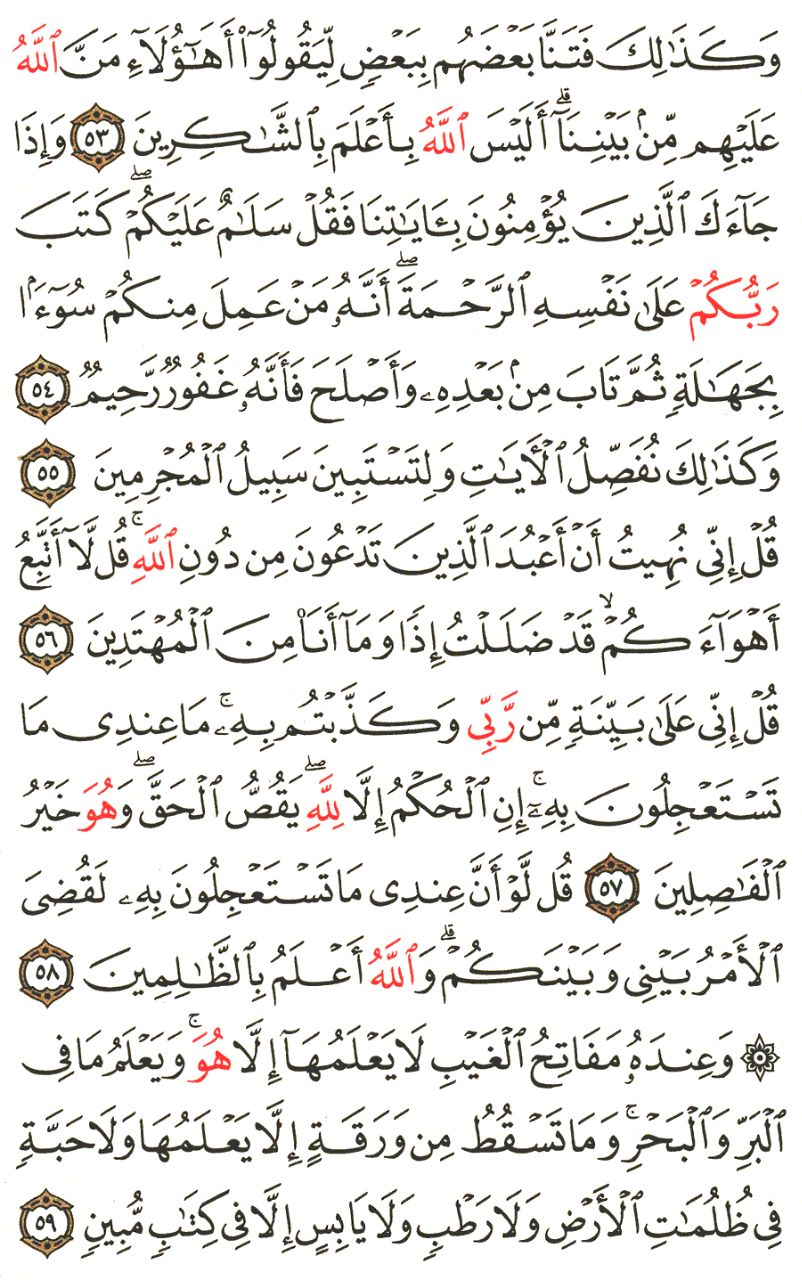 وَكَذَٰلِكَ فَتَنَّا بَعْضَهُم بِبَعْضٍ لِّيَقُولُوٓا۟ أَهَٰٓؤُلَآءِ مَنَّ ٱللَّهُ
عَلَيْهِم مِّنۢ بَيْنِنَآ ۗ أَلَيْسَ ٱللَّهُ بِأَعْلَمَ بِٱلشَّٰكِرِينَ ٥٣ وَإِذَا
جَآءَكَ ٱلَّذِينَ يُؤْمِنُونَ بِـَٔايَٰتِنَا فَقُلْ سَلَٰمٌ عَلَيْكُمْ ۖ كَتَبَ
رَبُّكُمْ عَلَىٰ نَفْسِهِ ٱلرَّحْمَةَ ۖ أَنَّهُۥ مَنْ عَمِلَ مِنكُمْ سُوٓءًۢا
بِجَهَٰلَةٍ ثُمَّ تَابَ مِنۢ بَعْدِهِۦ وَأَصْلَحَ فَأَنَّهُۥ غَفُورٌ رَّحِيمٌ ٥٤
وَكَذَٰلِكَ نُفَصِّلُ ٱلْـَٔايَٰتِ وَلِتَسْتَبِينَ سَبِيلُ ٱلْمُجْرِمِينَ ٥٥
قُلْ إِنِّى نُهِيتُ أَنْ أَعْبُدَ ٱلَّذِينَ تَدْعُونَ مِن دُونِ ٱللَّهِ ۚ قُل لَّآ أَتَّبِعُ
أَهْوَآءَكُمْ ۙ قَدْ ضَلَلْتُ إِذًا وَمَآ أَنَا۠ مِنَ ٱلْمُهْتَدِينَ ٥٦
قُلْ إِنِّى عَلَىٰ بَيِّنَةٍ مِّن رَّبِّى وَكَذَّبْتُم بِهِۦ ۚ مَا عِندِى مَا
تَسْتَعْجِلُونَ بِهِۦٓ ۚ إِنِ ٱلْحُكْمُ إِلَّا لِلَّهِ ۖ يَقُصُّ ٱلْحَقَّ ۖ وَهُوَ خَيْرُ
ٱلْفَٰصِلِينَ ٥٧ قُل لَّوْ أَنَّ عِندِى مَا تَسْتَعْجِلُونَ بِهِۦ لَقُضِىَ
ٱلْأَمْرُ بَيْنِى وَبَيْنَكُمْ ۗ وَٱللَّهُ أَعْلَمُ بِٱلظَّٰلِمِينَ ٥٨
۞ وَعِندَهُۥ مَفَاتِحُ ٱلْغَيْبِ لَا يَعْلَمُهَآ إِلَّا هُوَ ۚ وَيَعْلَمُ مَا فِى
ٱلْبَرِّ وَٱلْبَحْرِ ۚ وَمَا تَسْقُطُ مِن وَرَقَةٍ إِلَّا يَعْلَمُهَا وَلَا حَبَّةٍ
فِى ظُلُمَٰتِ ٱلْأَرْضِ وَلَا رَطْبٍ وَلَا يَابِسٍ إِلَّا فِى كِتَٰبٍ مُّبِينٍ ٥٩